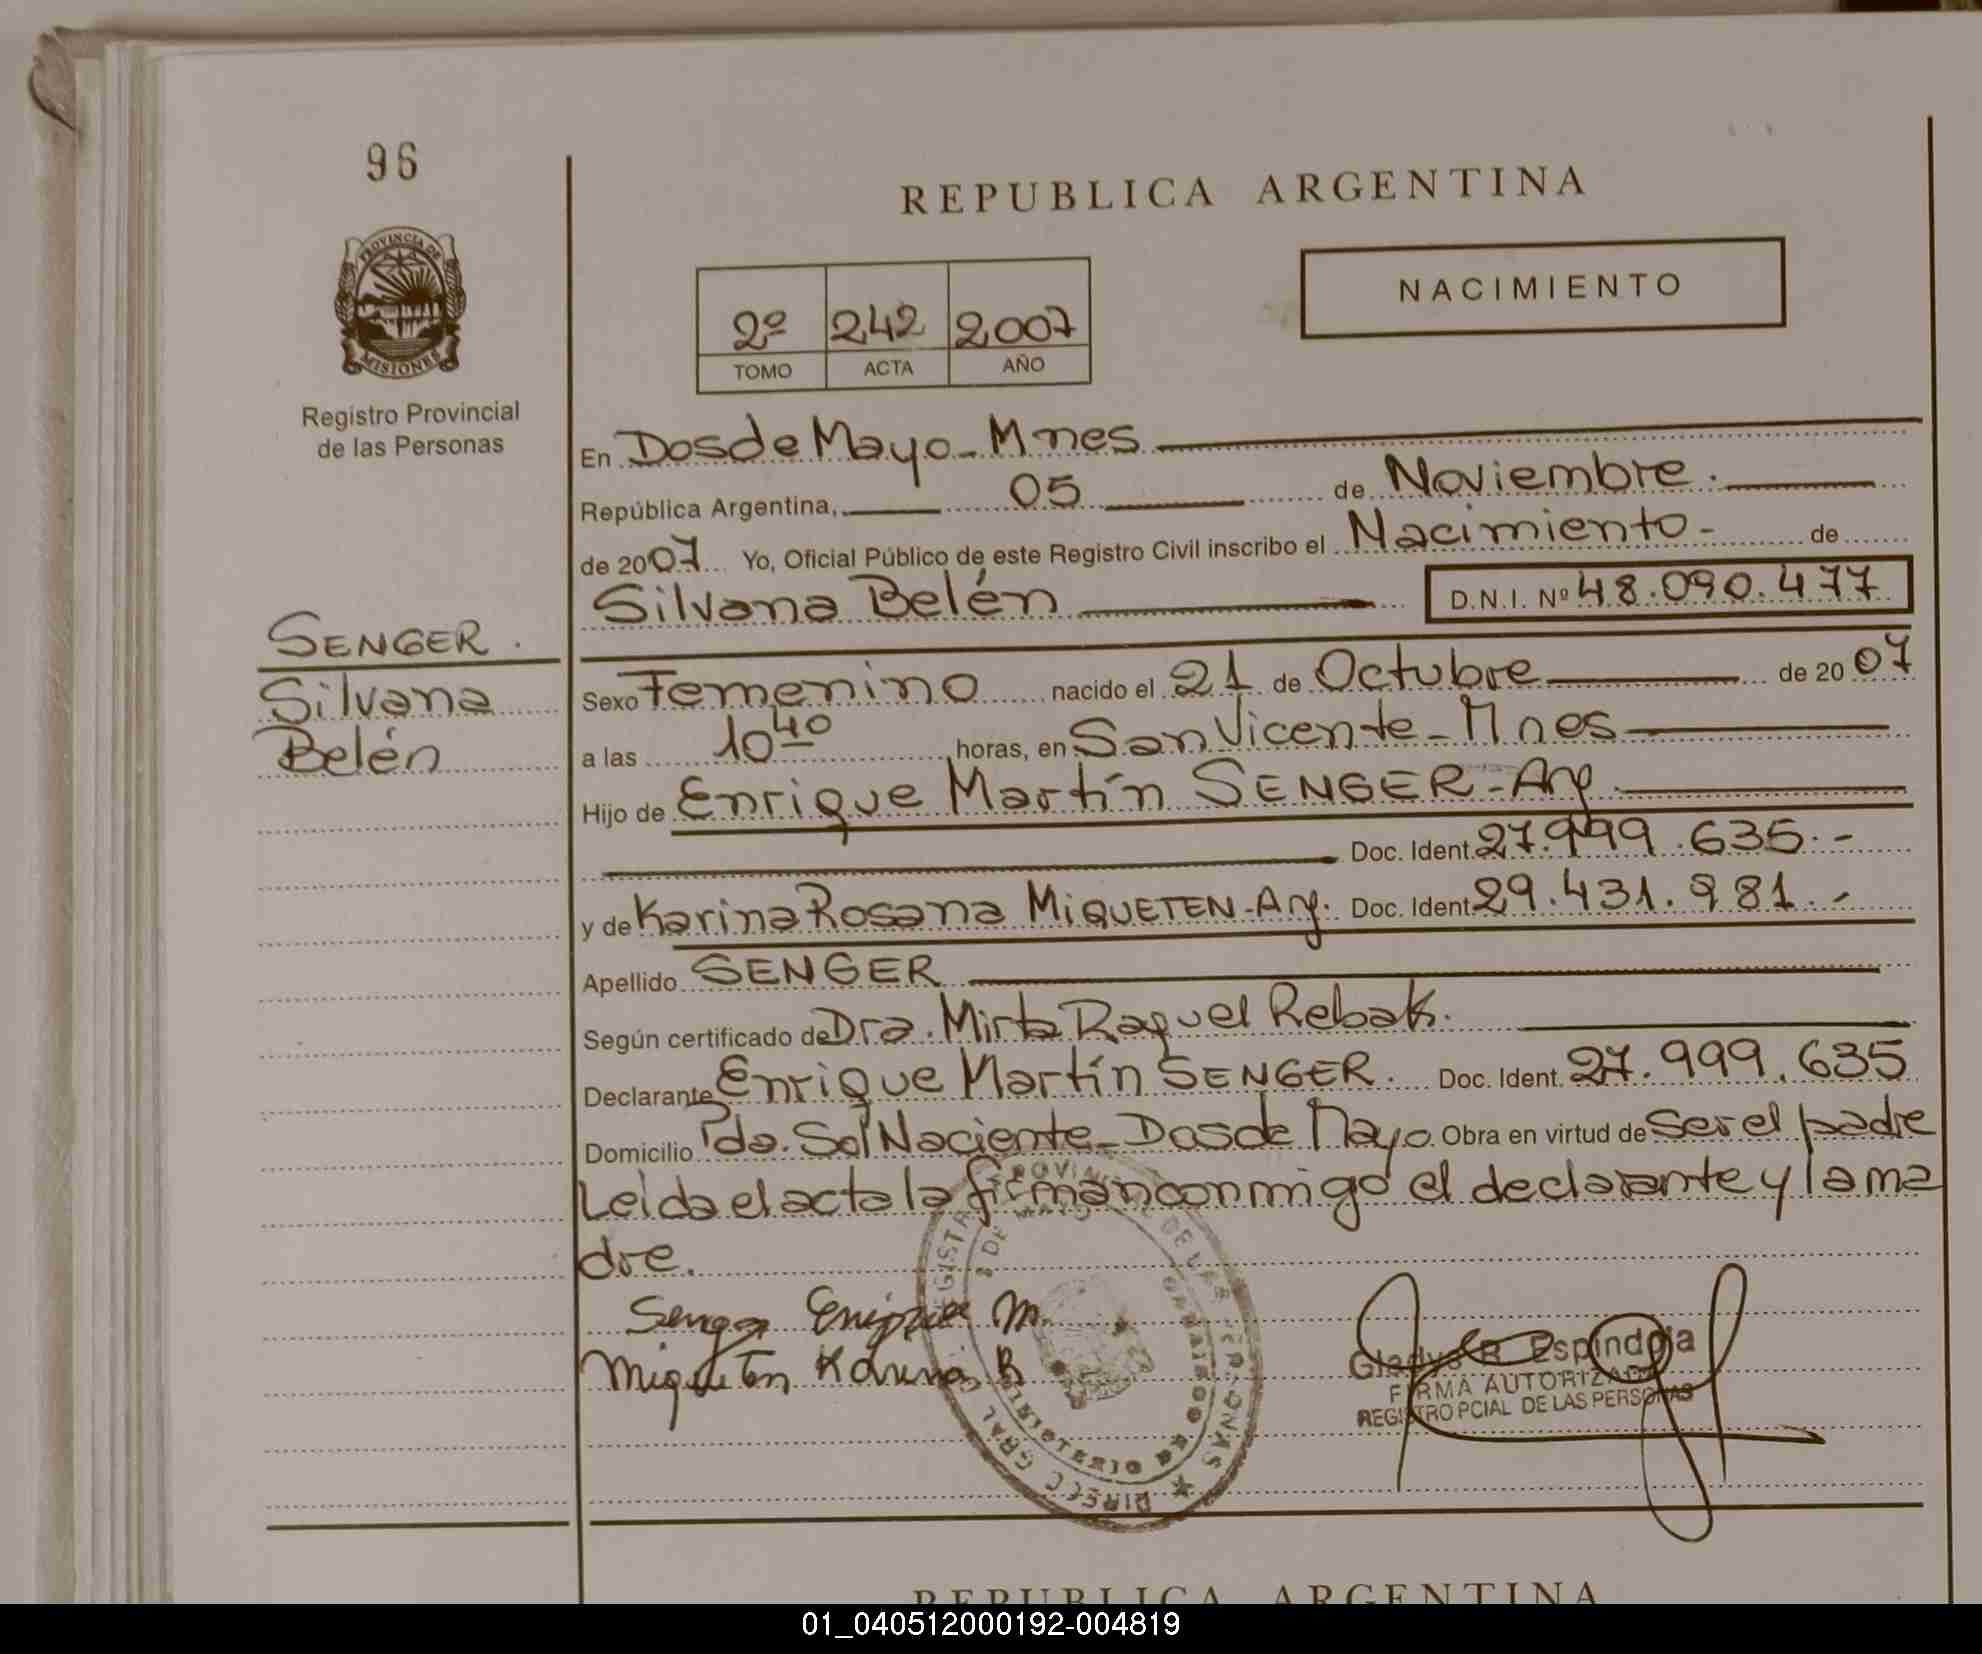 96
REPUBLICA ARGENTINA
PROVINCIA DE
MISIONES
Registro Provincial
de las Personas
2º 242 2007
TOMO ACTA AÑO
NACIMIENTO
En Dos de Mayo - Mnes
República Argentina, 05 de Noviembre.
de 2007 Yo, Oficial Público de este Registro Civil inscribo el Nacimiento - de
Silvana Belén D.N.I. Nº 48.090.477
SENGER.
Silvana
Belén
Sexo Femenino nacido el 21 de Octubre de 2007
a las 10 40 horas, en San Vicente - Mnes
Hijo de Enrique Martín SENGER - Arg.
Doc. Ident. 27.999.635.-
y de Karina Rosana MIQUETEN - Arg. Doc. Ident. 29.431.981.-
Apellido SENGER
Según certificado de Dra. Mirta Raquel Rebak.
Declarante Enrique Martín SENGER. Doc. Ident. 27.999.635
Domicilio Pda. Sol Naciente - Dos de Mayo. Obra en virtud de Ser el padre
Leida el acta la firman conmigo el declarante y la ma
dre.
Senger Enrique M.
Miqueten Karina R
Gladys R Espindola
FIRMA AUTORIZADA
REGISTRO PCIAL DE LAS PERSONAS
REPUBLICA ARGENTINA
01_040512000192-004819